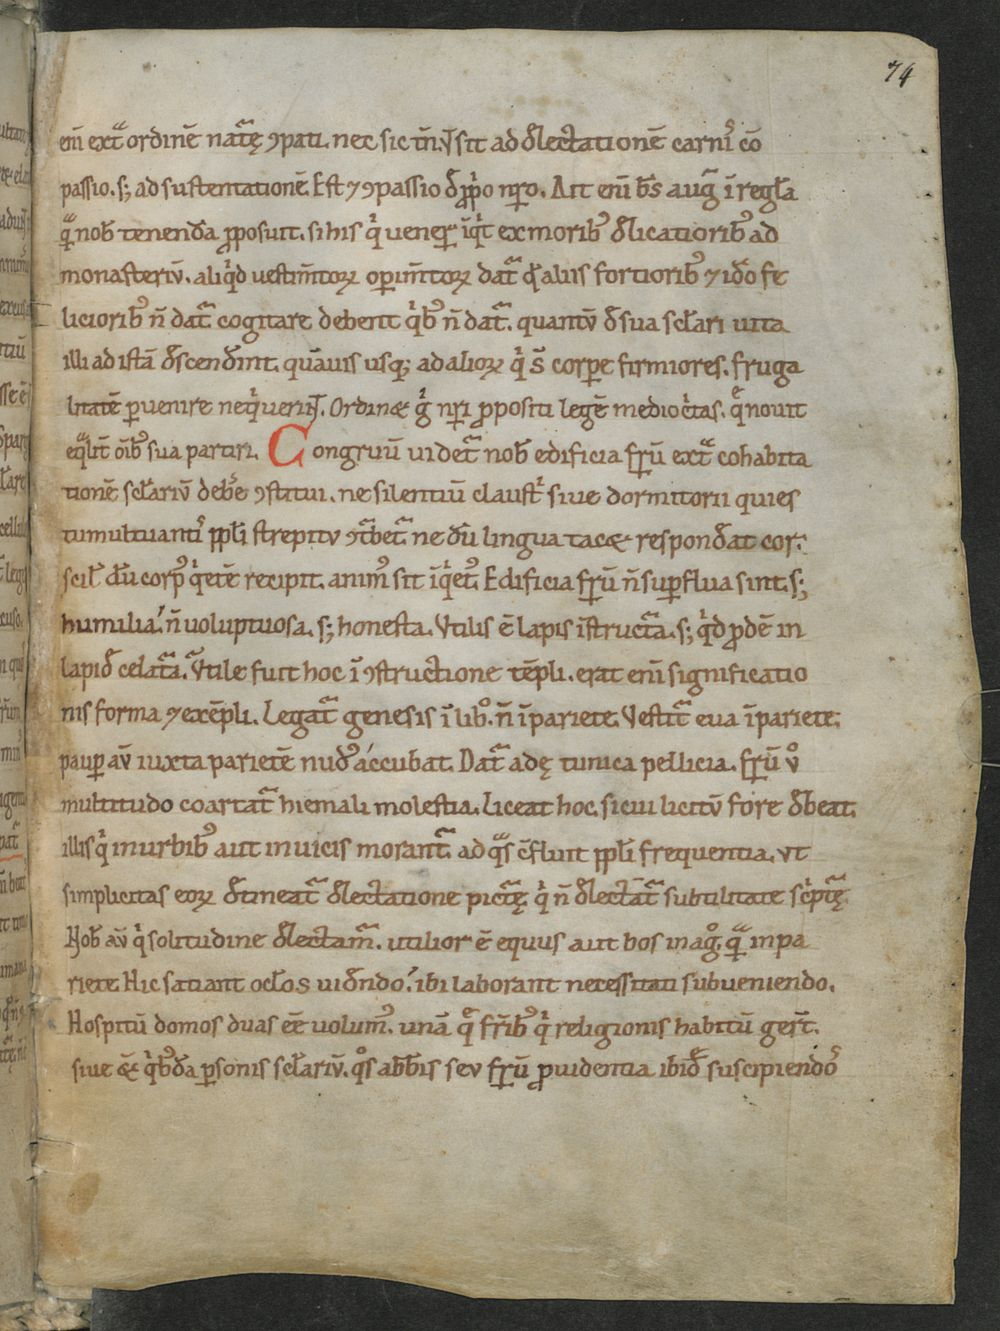 74
eni̅ ext͛ ordinē nat͛ę ꝯpati. nec sic tn̅. ł sit ad delectationē carni᷒ cō
passio. s; ad sustentationē. Est ⁊ ꝯpassio de ꝓp̅o nr̅o. Ait eni̅ bs̅ aug᷒ ī regl̅a
qͣ nob̅ tenenda ꝓposuit. si his qͥ uener̅ īqͥt ex moribꝰ delicatioribꝰ ad
monasteriv̅. aliqͥd uestim̅toꝝ opim̅toꝝ dat͛ qđ aliis fortioribꝰ ⁊ iđo fe
licioribꝰ n̅ dat͛ cogitare debent qͥbꝰ n̅ dat͛. quantv̅ de sua scl̅ari uita
illi ad istā descender̅int. quāuis usq; ad alioꝝ qͥ s̅ corpe firmiores. fruga
litatē ꝑuenire neqͥuerin̅t. Ordinæ gͥ nr̅i ꝓpositi legē mediocͥtas. qͤ nouit
eqͣlit̅ oib̅ꝰ sua partiri. Congruū uidet͛ nob̅ edificia frͫ̅ū extͣ cohabita
tionē scl̅ariv̅ debe᷒ ꝯstitui. ne silentiū claustͥ siue dormitorii quies
tumultuanti᷒ ppl̅i strepitv ꝯtͥbet͛ ne dū lingua tacæ respondeat cor.
scil̅. dū corpꝰ qͥetē recipit. animꝰ sit īqͥetꝰ. Edificia frū n̅ suꝑflua sint. s;
humilia. n̅ uoluptuosa. s; honesta. Vtilis ē lapis īstructͣa. s; qͥd ꝓdē in
lapide celatͣa. Vtile fuit hoc ī ꝯstructione tēpli. erat eni̅ significatio
nis forma ⁊ exēpli. Legat͛ genesis ī libͦ. n̅ ī pariete. Vestit͛ eua ī pariete.
pauꝑ av̅ iuxta parietē nudꝰ accubat. Dat͛ adę tunica pellicia. frū vͦ
multitudo coartat͛ hiemali molestia. Liceat hoc. si cui licitv̅ fore debeat.
illis qͥ in urbibꝰ aut in uicis morant͛. ad qͣs cflu̅nt ppl̅i frequentia. vt
simplicitas eoꝝ detineat͛ delectatione pictͣę. qͥ n̅ delectāt͛ subtilitate sc̅ptͣę.
Nob̅ av̅ qͥ solitudine delectam͛. utilior ē equus aut bos in agͦ. qͣ in pa
riete. Hic satiant ocl̅os uidendo. ibi laborant necessitati subueniendo.
Hospitū domos duas eē uolumꝰ. unā qͤ fr̅ibꝰ qͥ religionis habitū ger̅t.
siue æ̅ qͥbꝰda ꝑsonis scl̅ariv̅. qͦs abb̅is seu frū ꝓuidentia ibide suscipiendo᷒